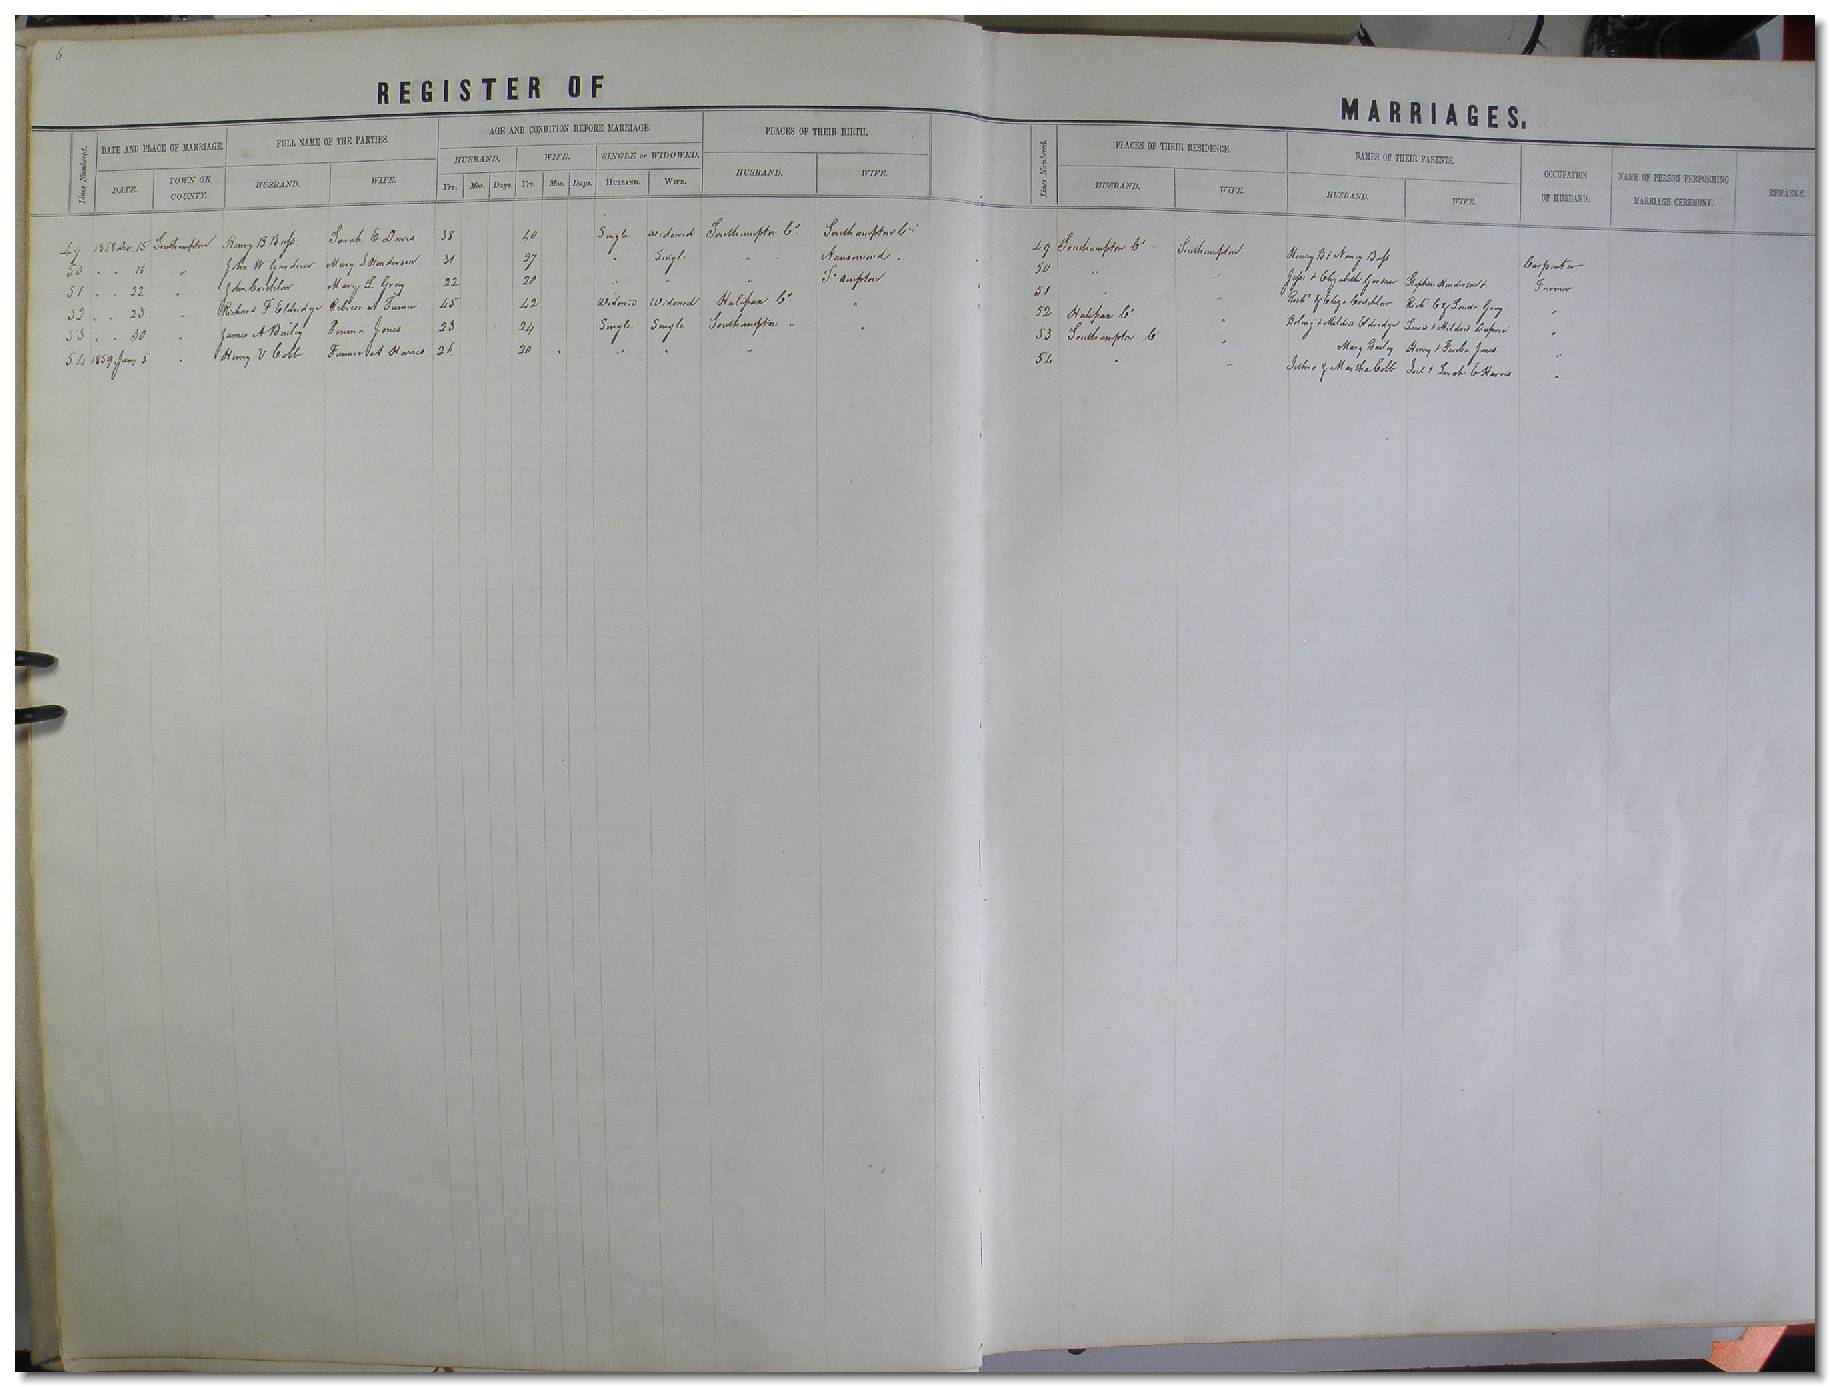 6
REGISTER OF
MARRIAGES.
Lines Numbered. DATE AND PLACE OF MARRIAGE. FULL NAME OF THE PARTIES. AGE AND CONDITION BEFORE MARRIAGE. PLACES OF THEIR BIRTH.
HUSBAND. WIFE. SINGLE or WIDOWED.
DATE. TOWN OR COUNTY. HUSBAND. WIFE. Yrs. Mos. Days. Yrs. Mos. Days. HUSBAND. WIFE. HUSBAND. WIFE.
49 1858 Dec. 15 Southampton Henry B Bass Sarah E Davis 38 40 Single Widowed Southampton Co. Southampton Co.
50 " " 16 " John W Gardner Mary S Henderson 31 27 " Single " " Nansemond "
51 " " 22 " John Mary L. Gray 22 20 " " " So ampton
52 " " 23 " Richard F Eldridge Rebecca A Turner 45 42 Widowed Widowed Halifax Co. "
53 " " 30 " James A Bailey Jones 23 24 Single Single Southampton " "
54 1859 Jany 5 " Henry V Cobb Harris 26 20 " " " "
Lines Numbered. PLACES OF THEIR RESIDENCE. NAMES OF THEIR PARENTS. OCCUPATION OF HUSBAND. NAME OF PERSON PERFORMING MARRIAGE CEREMONY. REMARKS.
HUSBAND. WIFE. HUSBAND. WIFE.
49 Southampton Co. Southampton Henry B & Nancy Bass Carpenter
50 " " Jesse & Elizabeth Gardner Stephen Henderson & Farmer
51 " " & Eliza Gray "
52 Halifax Co. " & Mildred Eldridge & Mildred "
53 Southampton Co " Mary Bailey Henry & Jones "
54 " " & Martha Cobb Joel & Sarah E Harris "